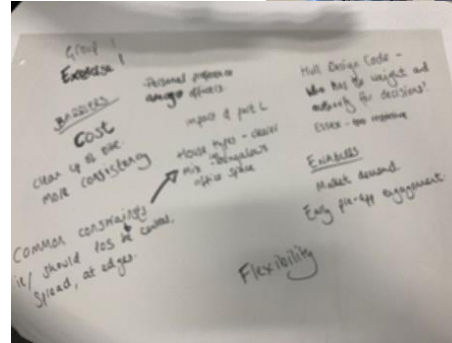 Group 1
Exercise 1
BARRIERS
Cost
clear up to date
more consistency
Common constraints
ie/ should POS be central,
spread, at edges.
Personal preference
officers.
Impact of part L
House types -
mix - bungalows
office space
Hull Design Code -
Who has the weight and
authority for decisions?
Essex -
ENABLERS
Market demand
Early pre-app engagement.
Flexibility